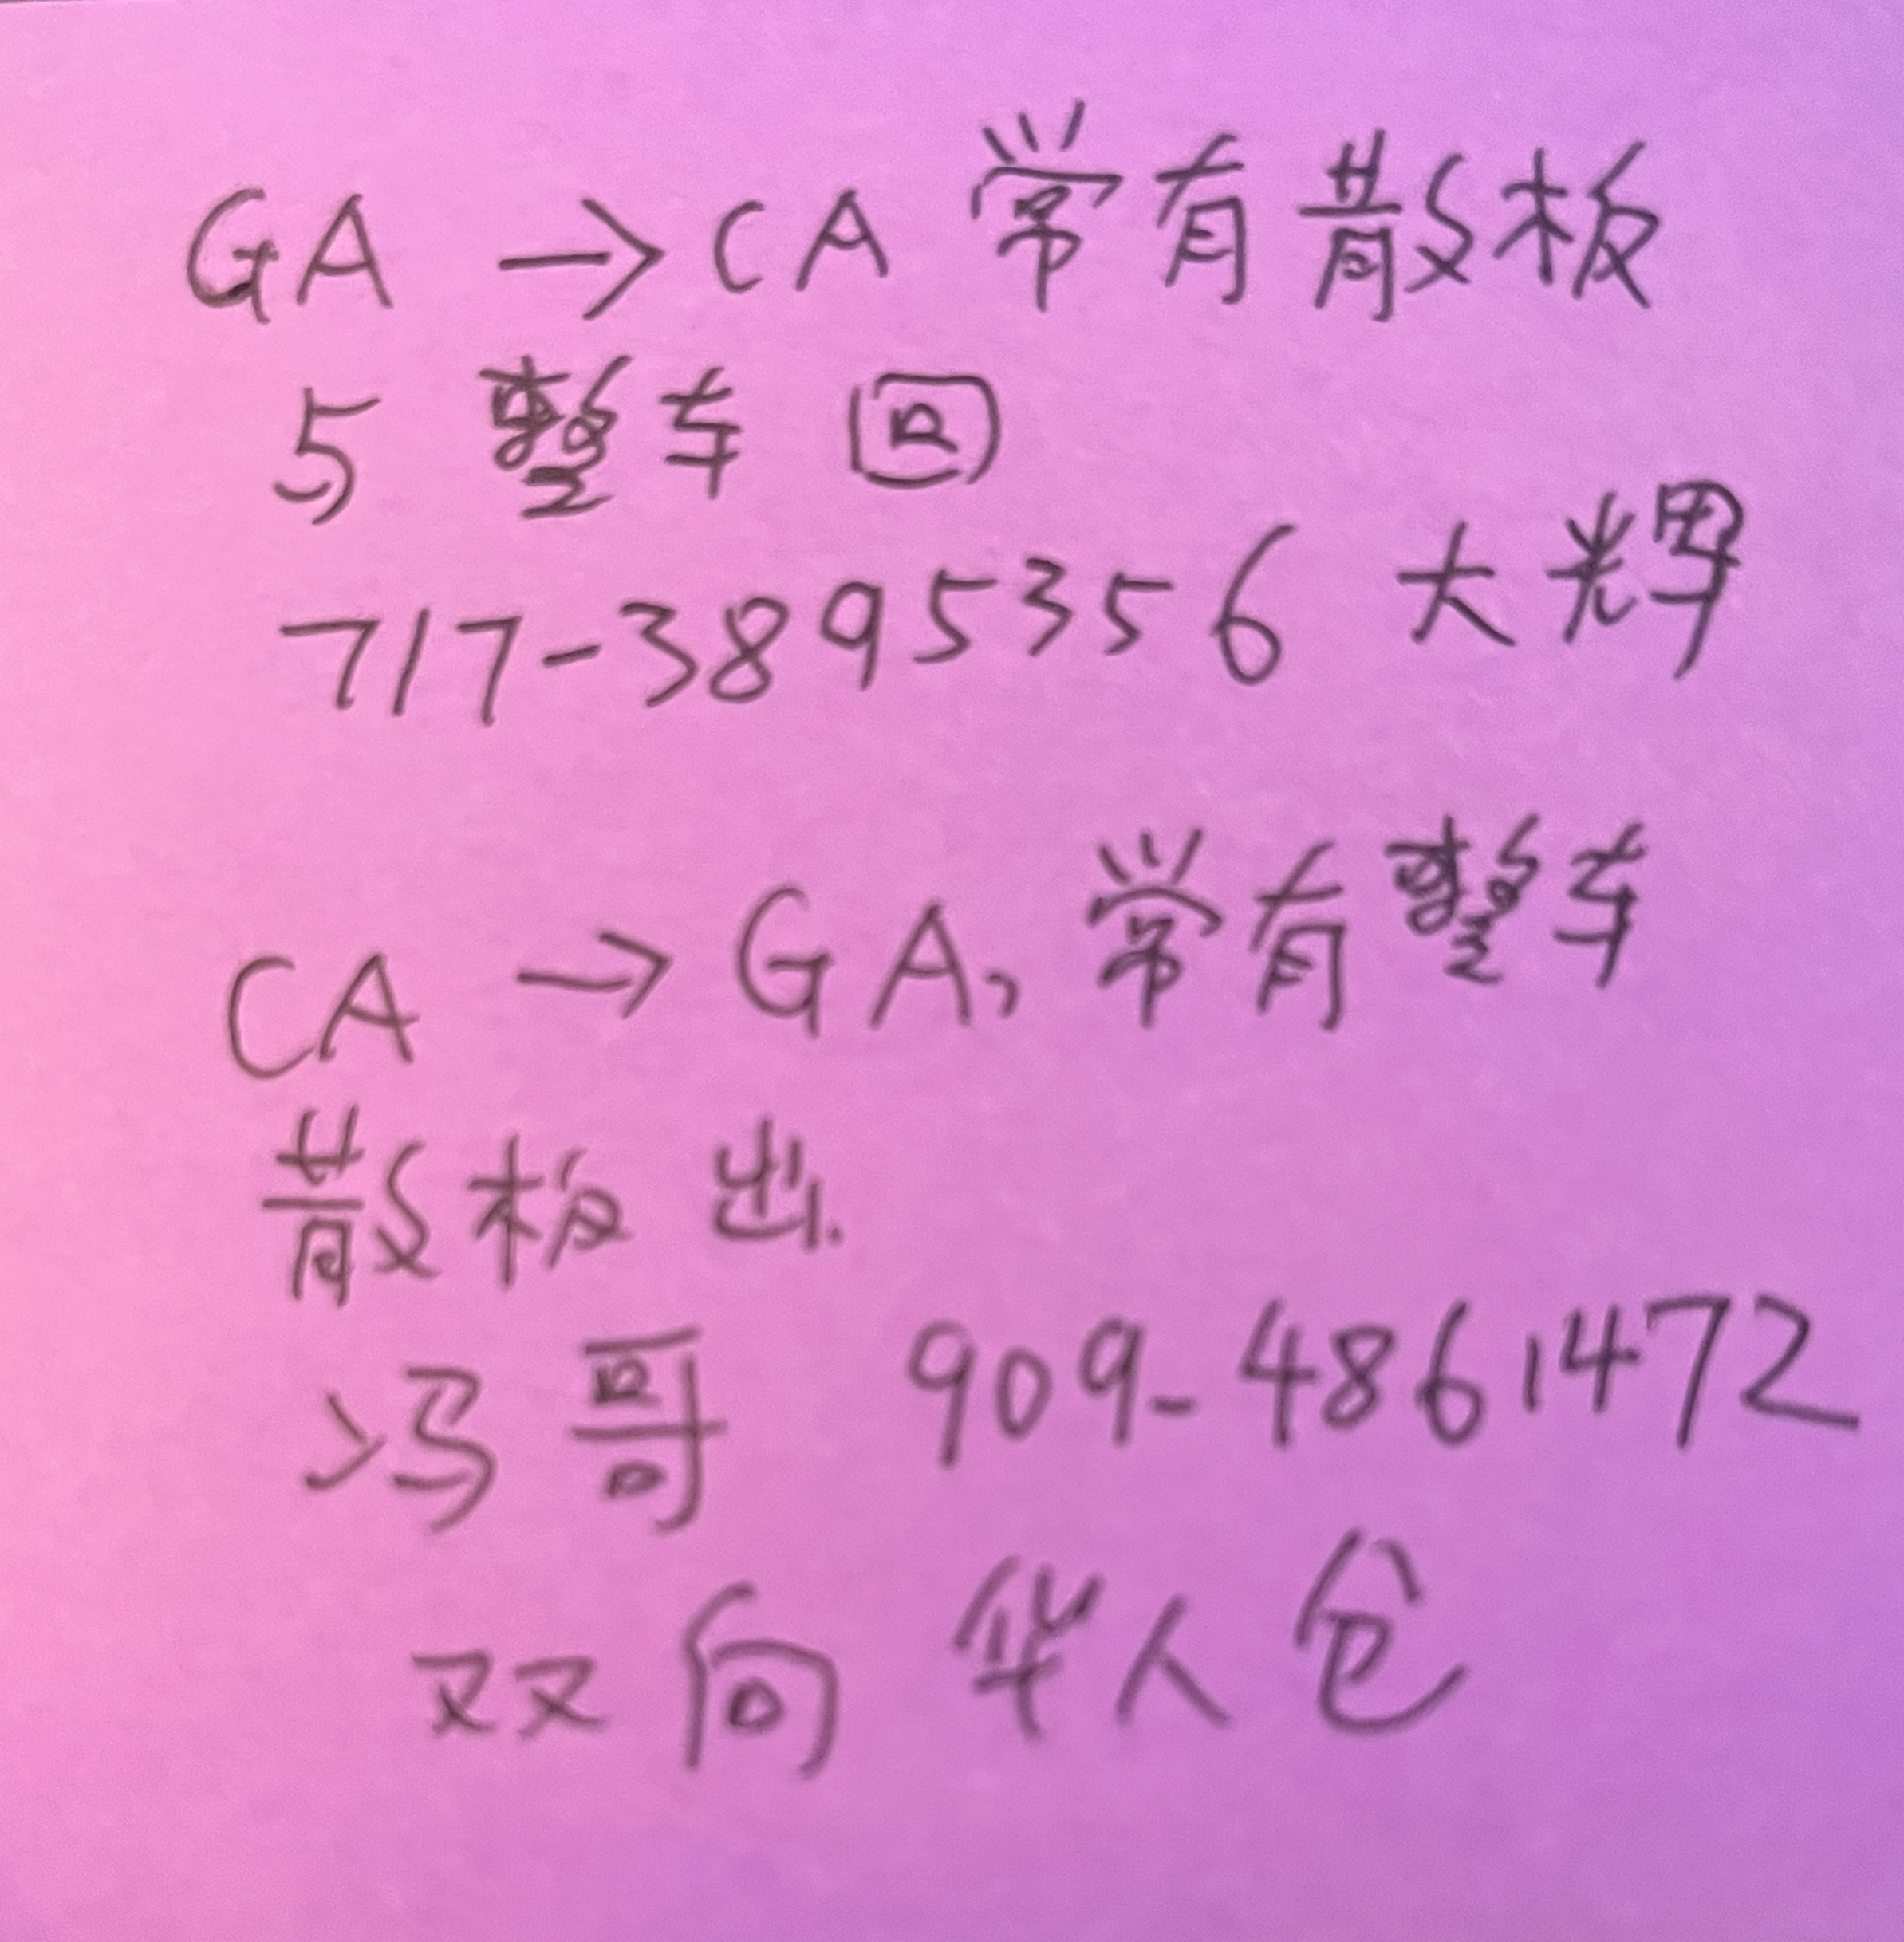 GA → CA 常有散板
与 整车 回
717-3895356 大辉
CA → GA, 常有整车
散板 出.
冯哥 909-4861472
双向 华人仓